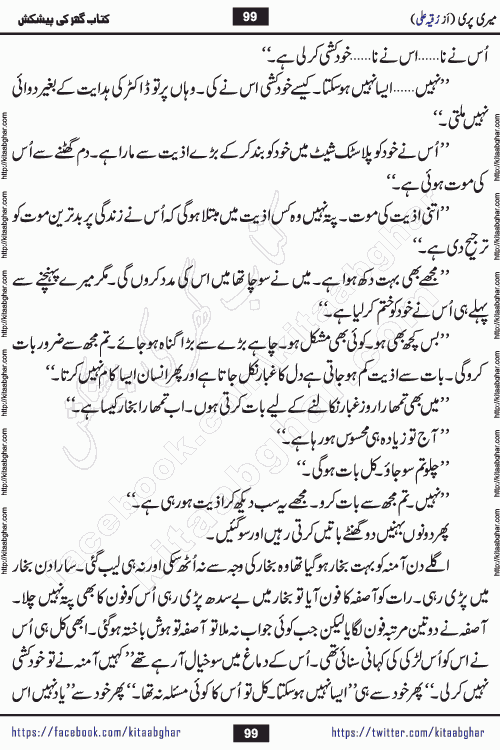 میری پری (از رقیہ علی)
99
کتاب گھر کی پیشکش
اُس نے نا......اس نے نا......خودکشی کر لی ہے۔‘‘
’’نہیں......ایسا نہیں ہو سکتا۔ کیسے خودکشی اس نے کی۔ وہاں پر تو ڈاکٹر کی ہدایت کے بغیر دوائی
نہیں ملتی۔‘‘
’’اُس نے خود کو پلاسٹک شیٹ میں خود کو بند کر کے بڑے اذیت سے مارا ہے۔ دم گھٹنے سے اُس
کی موت ہوئی ہے۔‘‘
’’اتنی اذیت کی موت۔ پتہ نہیں وہ کس اذیت میں مبتلا ہو گی کہ اُس نے زندگی پر بدترین موت کو
ترجیح دی ہے۔‘‘
’’مجھے بھی بہت دکھ ہوا ہے۔ میں نے سوچا تھا میں اس کی مدد کروں گی۔ مگر میرے پہنچنے سے
پہلے ہی اُس نے خود کو ختم کر لیا ہے۔‘‘
’’بس کچھ بھی ہو۔ کوئی بھی مشکل ہو۔ چاہے بڑے سے بڑا گناہ ہو جائے۔ تم مجھ سے ضرور بات
کرو گی۔ بات سے اذیت کم ہو جاتی ہے دل کا غبار نکل جاتا ہے اور پھر انسان ایسا کام نہیں کرتا۔‘‘
’’میں بھی تمھارا روز غبار نکالنے کے لیے بات کرتی ہوں۔ اب تمھارا بخار کیسا ہے۔‘‘
’’آج تو زیادہ ہی محسوس ہو رہا ہے۔‘‘
’’چلو تم سو جاؤ۔ کل بات ہو گی۔‘‘
’’نہیں۔ تم مجھ سے بات کرو۔ مجھے یہ سب دیکھ کر اذیت ہو رہی ہے۔‘‘
پھر دونوں بہنیں دو گھنٹے باتیں کرتی رہیں اور سو گئیں۔
اگلے دن آمنہ کو بہت بخار ہو گیا تھا وہ بخار کی وجہ سے نہ اُٹھ سکی اور نہ ہی لیب گئی۔ سارا دن بخار
میں پڑی رہی۔ رات کو آصفہ کا فون آیا تو بخار میں بے سدھ پڑی رہی اُس کو فون کا بھی پتہ نہیں چلا۔
آصفہ نے دو تین مرتبہ فون لگایا لیکن جب کوئی جواب نہ ملا تو آصفہ تو ہوش باختہ ہو گئی۔ ابھی کل ہی اُس
نے اس کو اُس لڑکی کی کہانی سنائی تھی۔ اُس کے دماغ میں سو خیال آ رہے تھے’’کہیں آمنہ نے تو خودکشی
نہیں کر لی۔‘‘ پھر خود سے ہی’’ایسا نہیں ہو سکتا۔ کل تو اُس کا کوئی مسئلہ نہ تھا۔‘‘ پھر خود سے’’یاد نہیں اس
http://kitaabghar.com
http://kitaabghar.com
http://kitaabghar.com
http://kitaabghar.com
http://kitaabghar.com
http://kitaabghar.com
http://kitaabghar.com
http://kitaabghar.com
http://kitaabghar.com
http://kitaabghar.com
http://kitaabghar.com
http://kitaabghar.com
کتاب گھر کی پیشکش
kitaabghar.com
facebook.com/kitaabghar
https://facebook.com/kitaabghar
99
https://twitter.com/kitaabghar